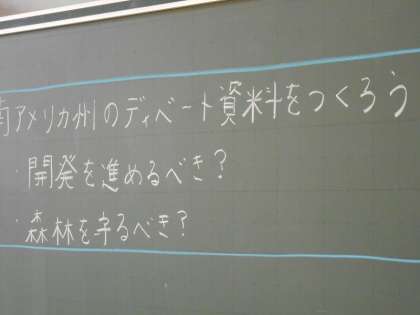 南アメリカ州のディベート資料をつくろう
・開発を進めるべき？
・森林を守るべき？